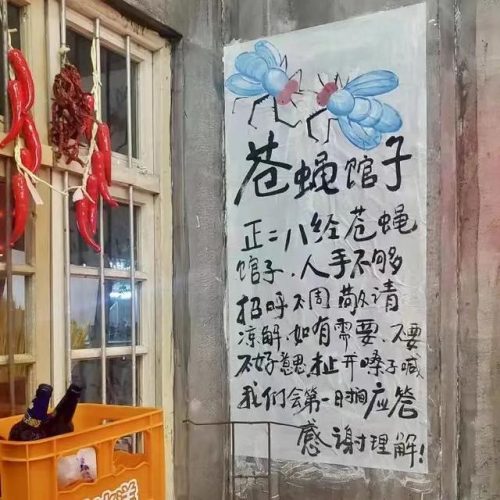 苍蝇馆子
正二八经苍蝇
馆子.人手不够
招呼不周敬请
凉解.如有需要.不要
不好意思.扯开嗓子喊
我们会第一时间应答
感谢理解!